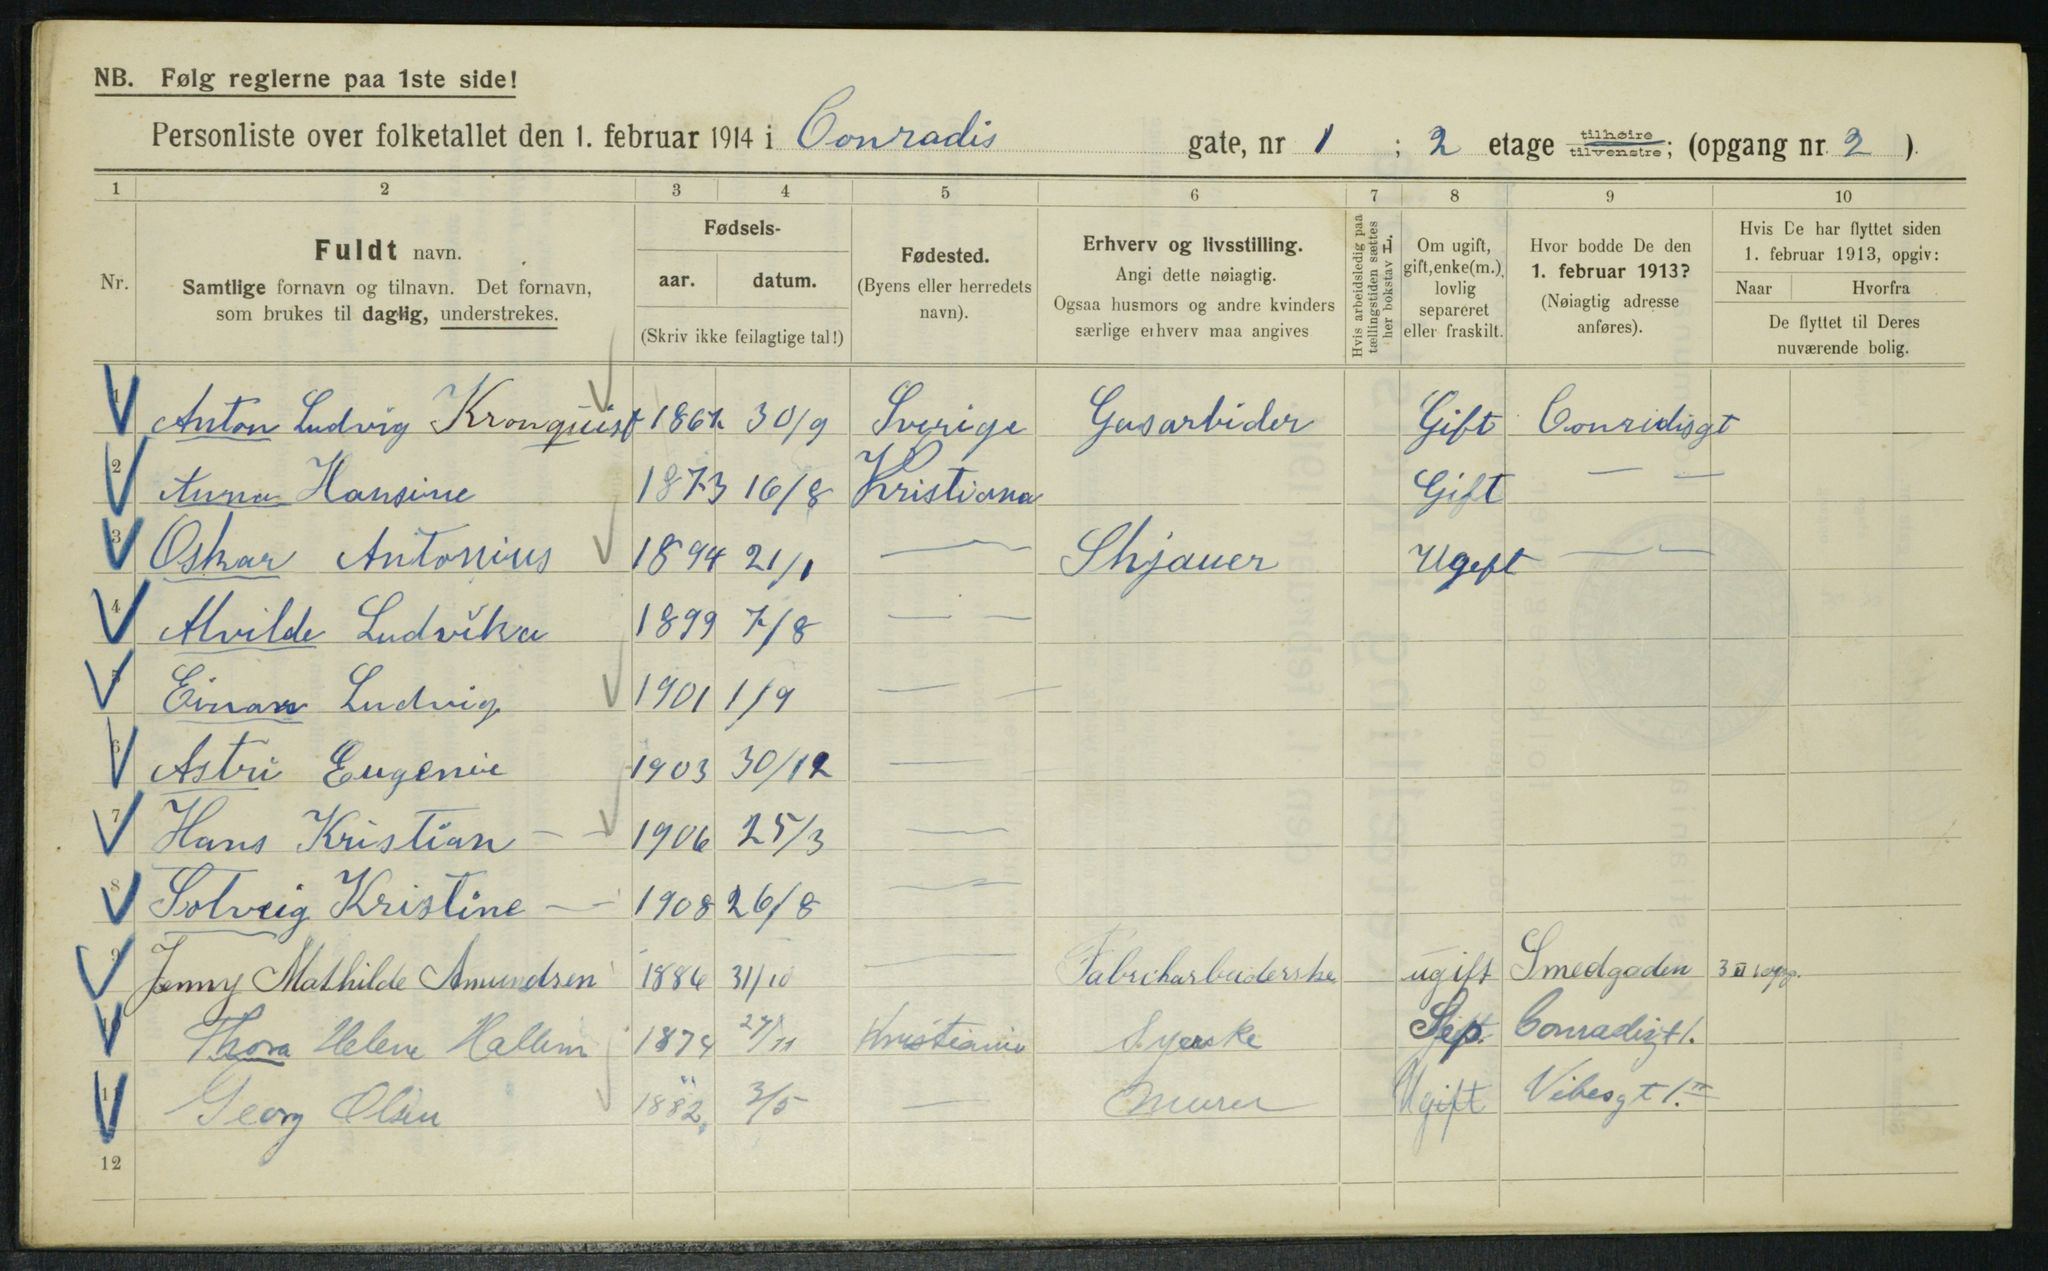 NB. Følg reglerne paa 1ste side!
Personliste over folketallet den 1. februar 1914 i Conradis gate, nr 1 ; 2 etage tilhøire tilvenstre; (opgang nr. 2 ).
1 2 3 4 5 6 7 8 9 10
Nr.
Fuldt navn.
Samtlige fornavn og tilnavn. Det fornavn,
som brukes til daglig, understrekes.
Fødsels-
aar. datum.
(Skriv ikke feilagtige tal!)
Fødested.
(Byens eller herredets
navn).
Erhverv og livsstilling.
Angi dette nøiagtig.
Ogsaa husmors og andre kvinders
særlige erhverv maa angives
Hvis arbeidsledig paa
tællingstiden sættes
her bokstav L.
Om ugift,
gift, enke(m.),
lovlig
separeret
eller fraskilt.
Hvor bodde De den
1. februar 1913?
(Nøiagtig adresse
anføres).
Hvis De har flyttet siden
1. februar 1913, opgiv:
Naar Hvorfra
De flyttet til Deres
nuværende bolig.
1 Anton Ludvig Kronquist 1867 30/9 Sverige Gasarbider Gift Conridisgt
2 Anna Hansine 1873 16/8 Kristiana Gift — —
3 Oskar Antonius 1894 21/1 — Shjauer Ugift — —
4 Alvilde Ludvika 1899 7/8 — —
5 Einar Ludvig 1901 1/9 — —
6 Astri Eugenie 1903 30/12 —
7 Hans Kristian — — 1906 25/3 —
8 Solveig Kristine — — 1908 26/8 —
9 Jenny Mathilde Amundsen 1886 31/10 — Fabrikarbeiderske ugift Smedgaden 3 II opg.
10 Thora Helene Hallum 1874 27/11 Kristiania Syerske Sep. Conradigt 1.
11 Georg Olsen 1882 3/5 — Murer Ugift Vibesgt 1. II
12